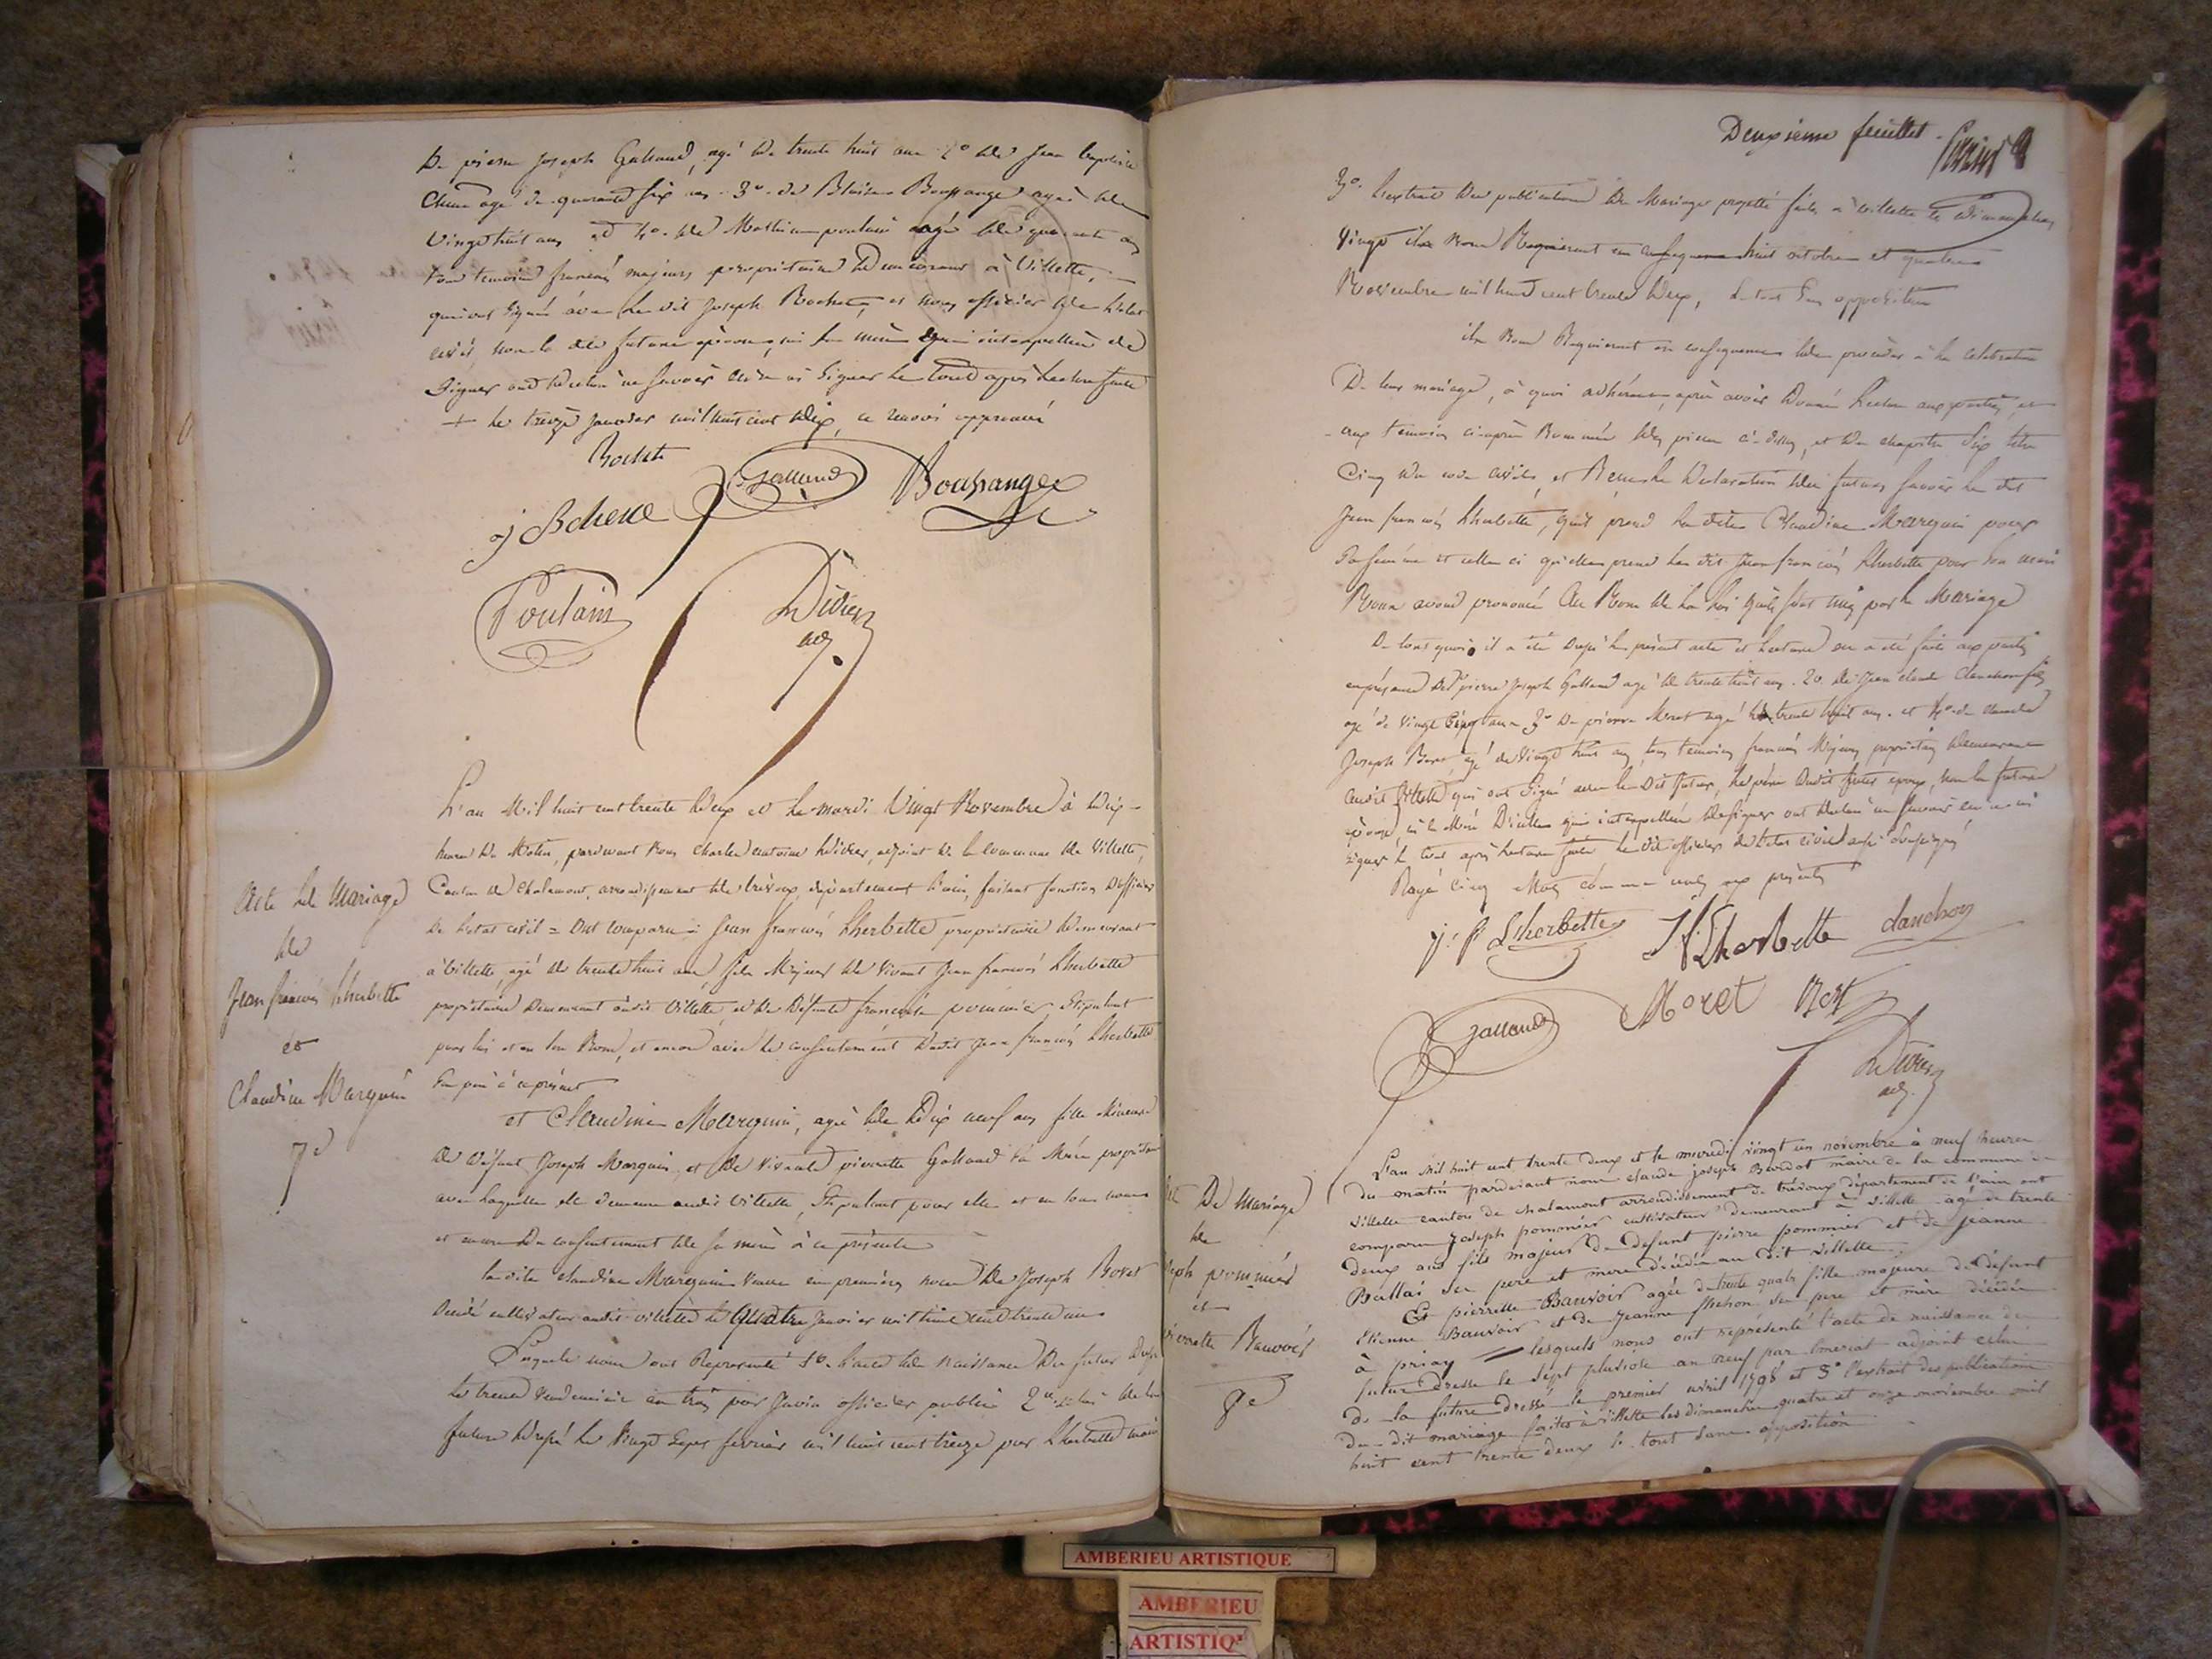 De pierre joseph Galland, agé de trente huit ans 2° de Jean baptiste
Chene agé de quarante six ans 3° de Blaise Boussange agé de
vingt huit ans et 4° de Mathieu poulain agé de quarante ans
tous temoins francais majeurs proprietaires Demeurant à Villette,
qui ont signé avec le dit Joseph Rochet, et nous officier de l'etat
civil non la dite future épouse, ni sa mère qui interpellée de
Signer ont déclaré ne savoir écrire ni signer le tout après lecture faite
+ le treize janvier mil huit cent dix, ce renvoi approuvé
Rochet
j Bchene
Galland
Boussange
Poulain
Divier
adj.
L'an Mil huit cent trente deux et le mardi Vingt Novembre à dix
heures du Matin, pardevant Nous Charles antoine Divier, adjoint de la Commune de Villette,
Canton de Chalamont, arrondissement de trévoux, département l'ain, faisant fonction d'officier
De l'etat civil = Ont comparu = Jean francois Lherbette proprietaire demeurant
à Villette, agé de trente huit ans, fils Majeur de vivant Jean francois Lherbette
propriétaire Demeurant audit Villette, et de Défunte francoise pommier, Stipulant
pour lui et en son Nom, et encore avec le consentement dudit Jean francois Lherbette
Son père à ce présent
et Claudine Marguin, agée de Dix neuf ans fille Mineure
De défunt Joseph Marguin, et de vivante pierrette Galland sa Mère propriétaire
avec laquelle elle demeure audit Villette, Stipulant pour elle et en son nom
et encore Du consentement de sa mère à ce présente
la dite claudine Marguin Veuve en premières noces De Joseph Boret
Décédé cultivateur audit villette le quatre Janvier mil huit cent trente un
Lesquels nous ont Représenté 1° l'acte de Naissance Du futur
le trente Vendemiaire an trois par Javin officier public 2° celui de la
future dressé le Vingt Sept fevrier mil huit cent treize par Lherbette maire
Acte de Mariage
de
Jean francois Lherbette
et
Claudine Marguin
7e
Deuxieme feuillet.
3°. L'extrait des publications De Mariage projetté faites à villette les Dimanches
Vingt ils Nous Requierent en conséquence huit octobre et quatre
Novembre mil huit cent trente deux, le tout sans opposition
ils Nous Requierent en conséquence de procéder à la célébration
De leur mariage, à quoi adhérant, après avoir Donné lecture aux parties, et
aux temoins ci-après Nommés des pieces ci-dessus, et du chapitre Six titre
Cinq du code civil, et Reçu la Declaration des futurs savoir le dit
Jean francois Lherbette, qu'il prend la dite Claudine Marguin pour
Sa femme et celle ci qu'elle prend le dit Jean francois Lherbette pour son mari
Nous avons prononcé Au Nom de la loi qu'ils sont unis par le Mariage
De tout quoi il a été dressé le présent acte et lecture en a été faite aux parties
en présence De pierre Joseph Galland agé de trente huit ans. 2° De Jean claude Clanchon fils
agé de vingt cinq ans 3° De pierre Moret agé de trente huit ans. et 4° de claude
Joseph Boret agé de Vingt huit ans, tous temoins francais Majeurs propriétaires demeurant
audit Villette qui ont signé avec le Dit futur, le père dudit futur époux, non la future
épouse, ni la Mère D'icelle qui interpellées de signer ont déclaré ne savoir écrire ni
signer le tout après lecture faite le dit officier de l'etat civil aussi soussigné
Rayé cinq Mots comme nuls aux présentes
J. F Lherbette
J F Lherbette
clanchon
Galland
Moret
Boret
Divier
adj.
L'an mil huit cent trente deux et le mercredi vingt un novembre à neuf heures
du matin pardevant nous claude joseph Berodot maire de la commune de
villette canton de chalamont arrondissement de trévoux département de l'ain ont
comparu Joseph pommier cultivateur demeurant à villette agé de trente
deux ans fils majeur de defunt pierre pommier et de jeanne
Ballai ses pere et mere décédés au dit villette.
Et pierrette Bauvoir agée de trente quatre fille majeure de defunt
Etienne Bauvoir et de Jeanne ses pere et mère décédés
à priay = lesquels nous ont représenté l'acte de naissance du
futur dressé le sept pluviose an neuf par adjoint celui
de la future dressé le premier avril 1798 et 3° l'extrait des publications
du dit mariage faites à villette les dimanches quatre et onze novembre mil
huit cent trente deux le tout sans opposition
De Mariage
de
pommier
et
pierrette Bauvoir
8e
AMBERIEU ARTISTIQUE
AMBERIEU
ARTISTIQ